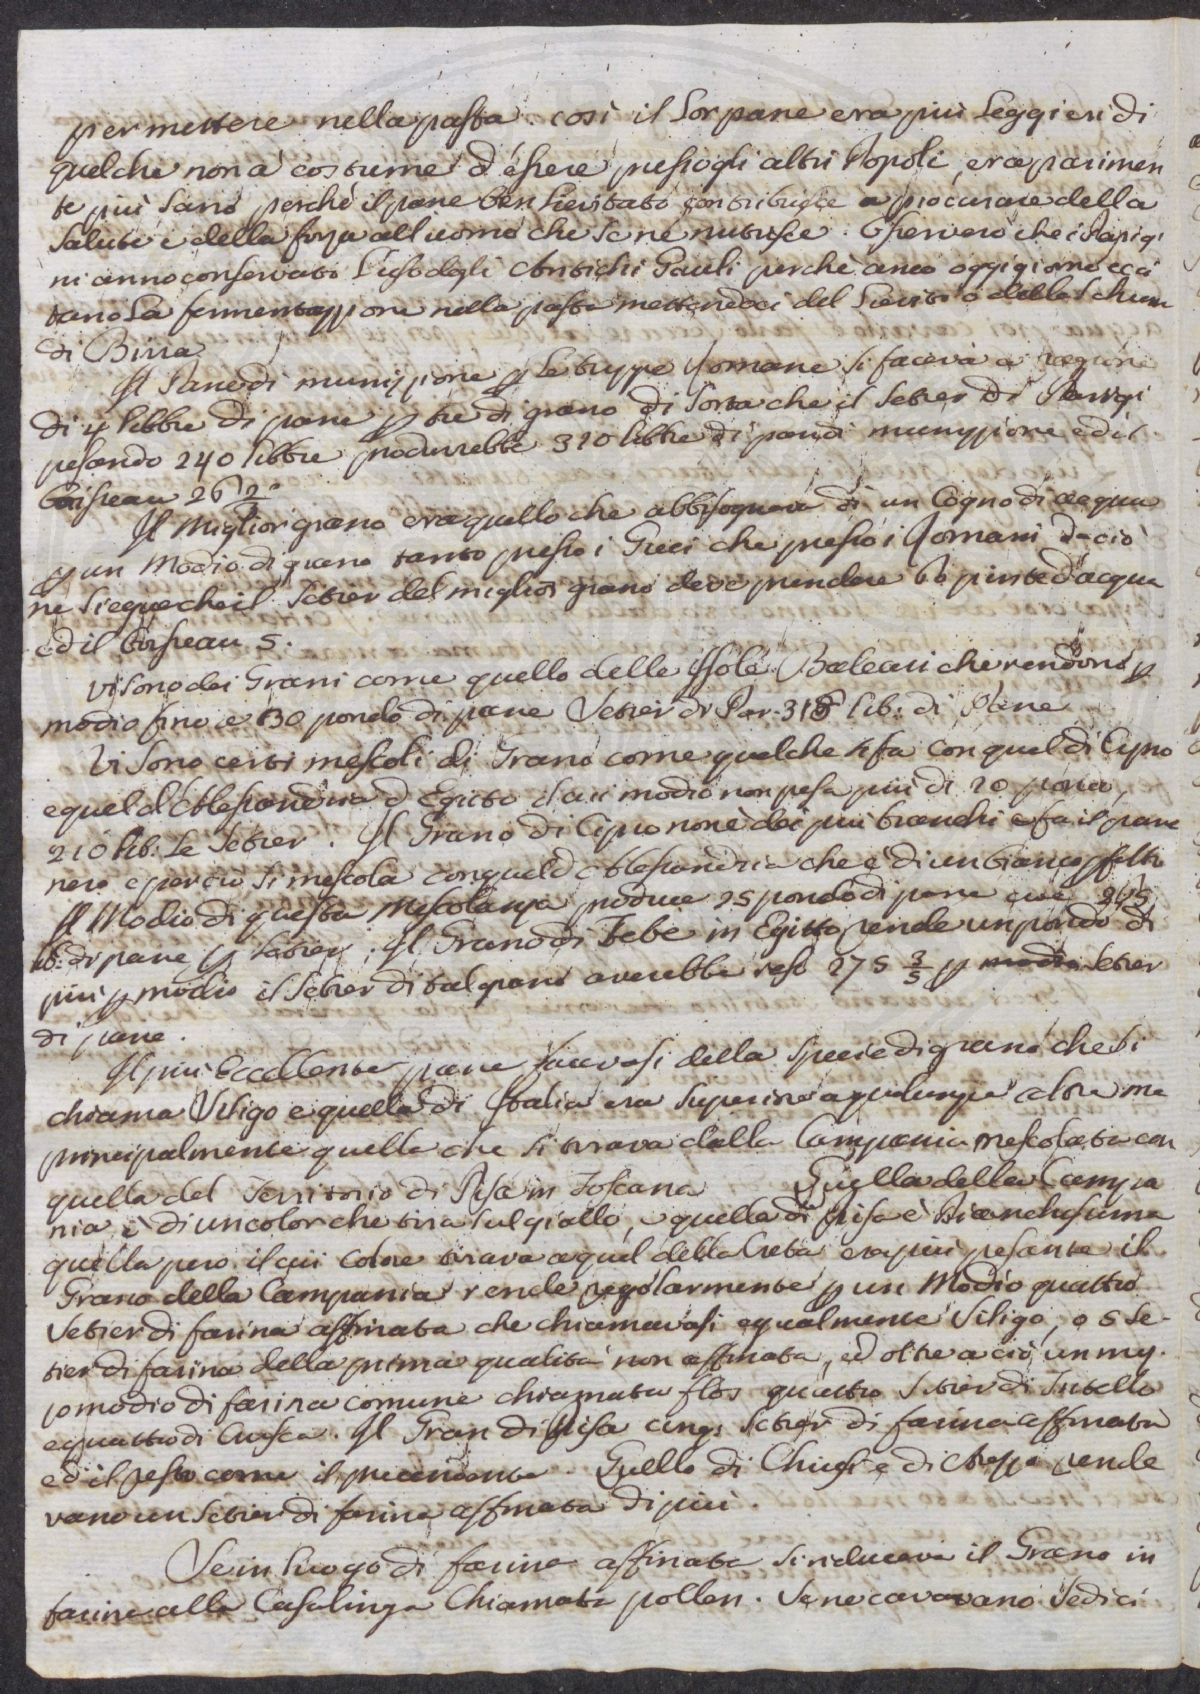 per mettere nella pasta. così il Lor pane era più Leggieri di
quelche non à costume d'essere pressogli altri Popoli, era parimen
te più sano perchè il pane ben Lievitato contribuisce a procurare della
salute e della forza all'uomo che se ne nutrisce. Osservero che i Parigi
ni anno conservato L'uso degli Antichi Gauli perchè anco oggigiorno ecci
tano La fermentazzione nella pasta mettendoci del Lievito o della schiuma
di Birra
Il Pane di munizzione p Le truppe Romane si faceva a ragione
di 4 libbre di pane p tre di grano di sorta che il Setier di Parigi
pesando 240 libbre produrrebbe 320 libbre di pan di munizzione ed il
Boisseau 26 2/3
Il Miglior grano era quello che abbisognava di un Cogno di acqua
p un Modio di grano tanto presso i Greci che presso i Romani da ciò
ne siegue che il Setier del miglior grano deve prendere 60 pinte d'acqua
ed il Boisseau 5.
Vi sono dei Grani come quello delle Isole Baleari che rendono p
modio fino a 30 pondo di pane Setier di Par. 318 lib: di Pane
Vi sono certi mescoli di Grano come quelche si fa con quel di Cipro
e quel d'Alessandria d'Egitto il cui modio non pesa più di 20 pondo,
210 lib: Le Setier. Il Grano di Cipro non è dei più bianchi e fa il pane
nero e perciò si mescola con quel d'Alessandria che è di un bianco pfetto
Il Modio di questa Mescolanza produce 25 pondo di pane cioè 265
lib: di pane p Setier; Il Grano di Tebe in Egitto rende un pondo di
più p modio il Setier di tal grano averebbe reso 275 3/5 p modio Setier
di pane.
Il più Eccellente pane facevasi della specie di grano che si
chiama Siligo e quella di Italia era superiore a qualunque altra ma
principalmente quella che si tirava dalla Campania mescolata con
quella del Territorio di Pisa in Toscana Quella della Campa
nia è di un color che tira sul giallo, e quella di Pisa è Bianchissima
quella pero il cui colore tirava a quel della Creta era più pesante il
Grano della Campania rende regolarmente p un Modio quattro
Setier di farina affinata che chiamavasi egualmente Siligo, o 5 Se-
tier di farina della prima qualità non affinata, ed oltre a ciò un mez.
zo modio di farina comune chiamata flos quattro Setier di Tritello
e quattro di Crusca. Il Gran di Pisa cinq: Setier di farina affinata
ed il resto come il precendente. Quello di Chiusi e di Arezzo rende
vano un Setier di farina affinata di più.
Se in luogo di farina affinata si riduceva il Grano in
farina alla Casalinga Chiamata pollen. Se ne cavavano Sedici